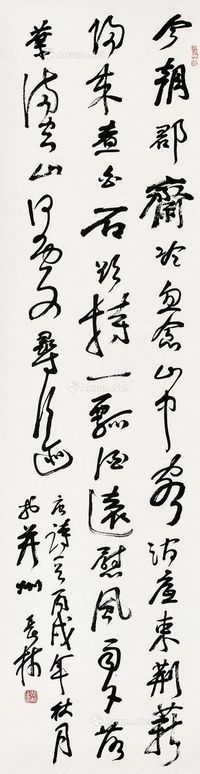 今朝郡齋冷忽念山中客澗底束荊薪
歸來煮白石欲持一瓢酒遠慰風雨夕落
葉滿空山何處尋行迹
唐詩一首丙戌年秋月
於州